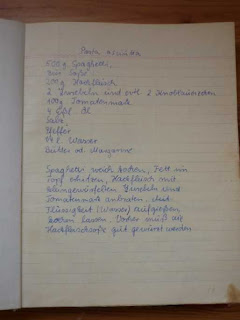 Pasta
500 g Spaghetti,
200 g Hackfleisch
2 Zwiebeln und evtl. 2 Knoblauchzehen
100g Tomatenmark
4 Eßl. Öl
Salz
Pfeffer
l. Wasser
Butter od. Margarine
Spaghetti weich kochen, Fett im
Topf erhitzen, Hackfleisch mit
Zwiebeln und
Tomatenmark anbraten. Mit
Flüssigkeit (Wasser) aufgießen
kochen lassen. Vorher muß die
Hackfleischsoße gut gewürzt werden